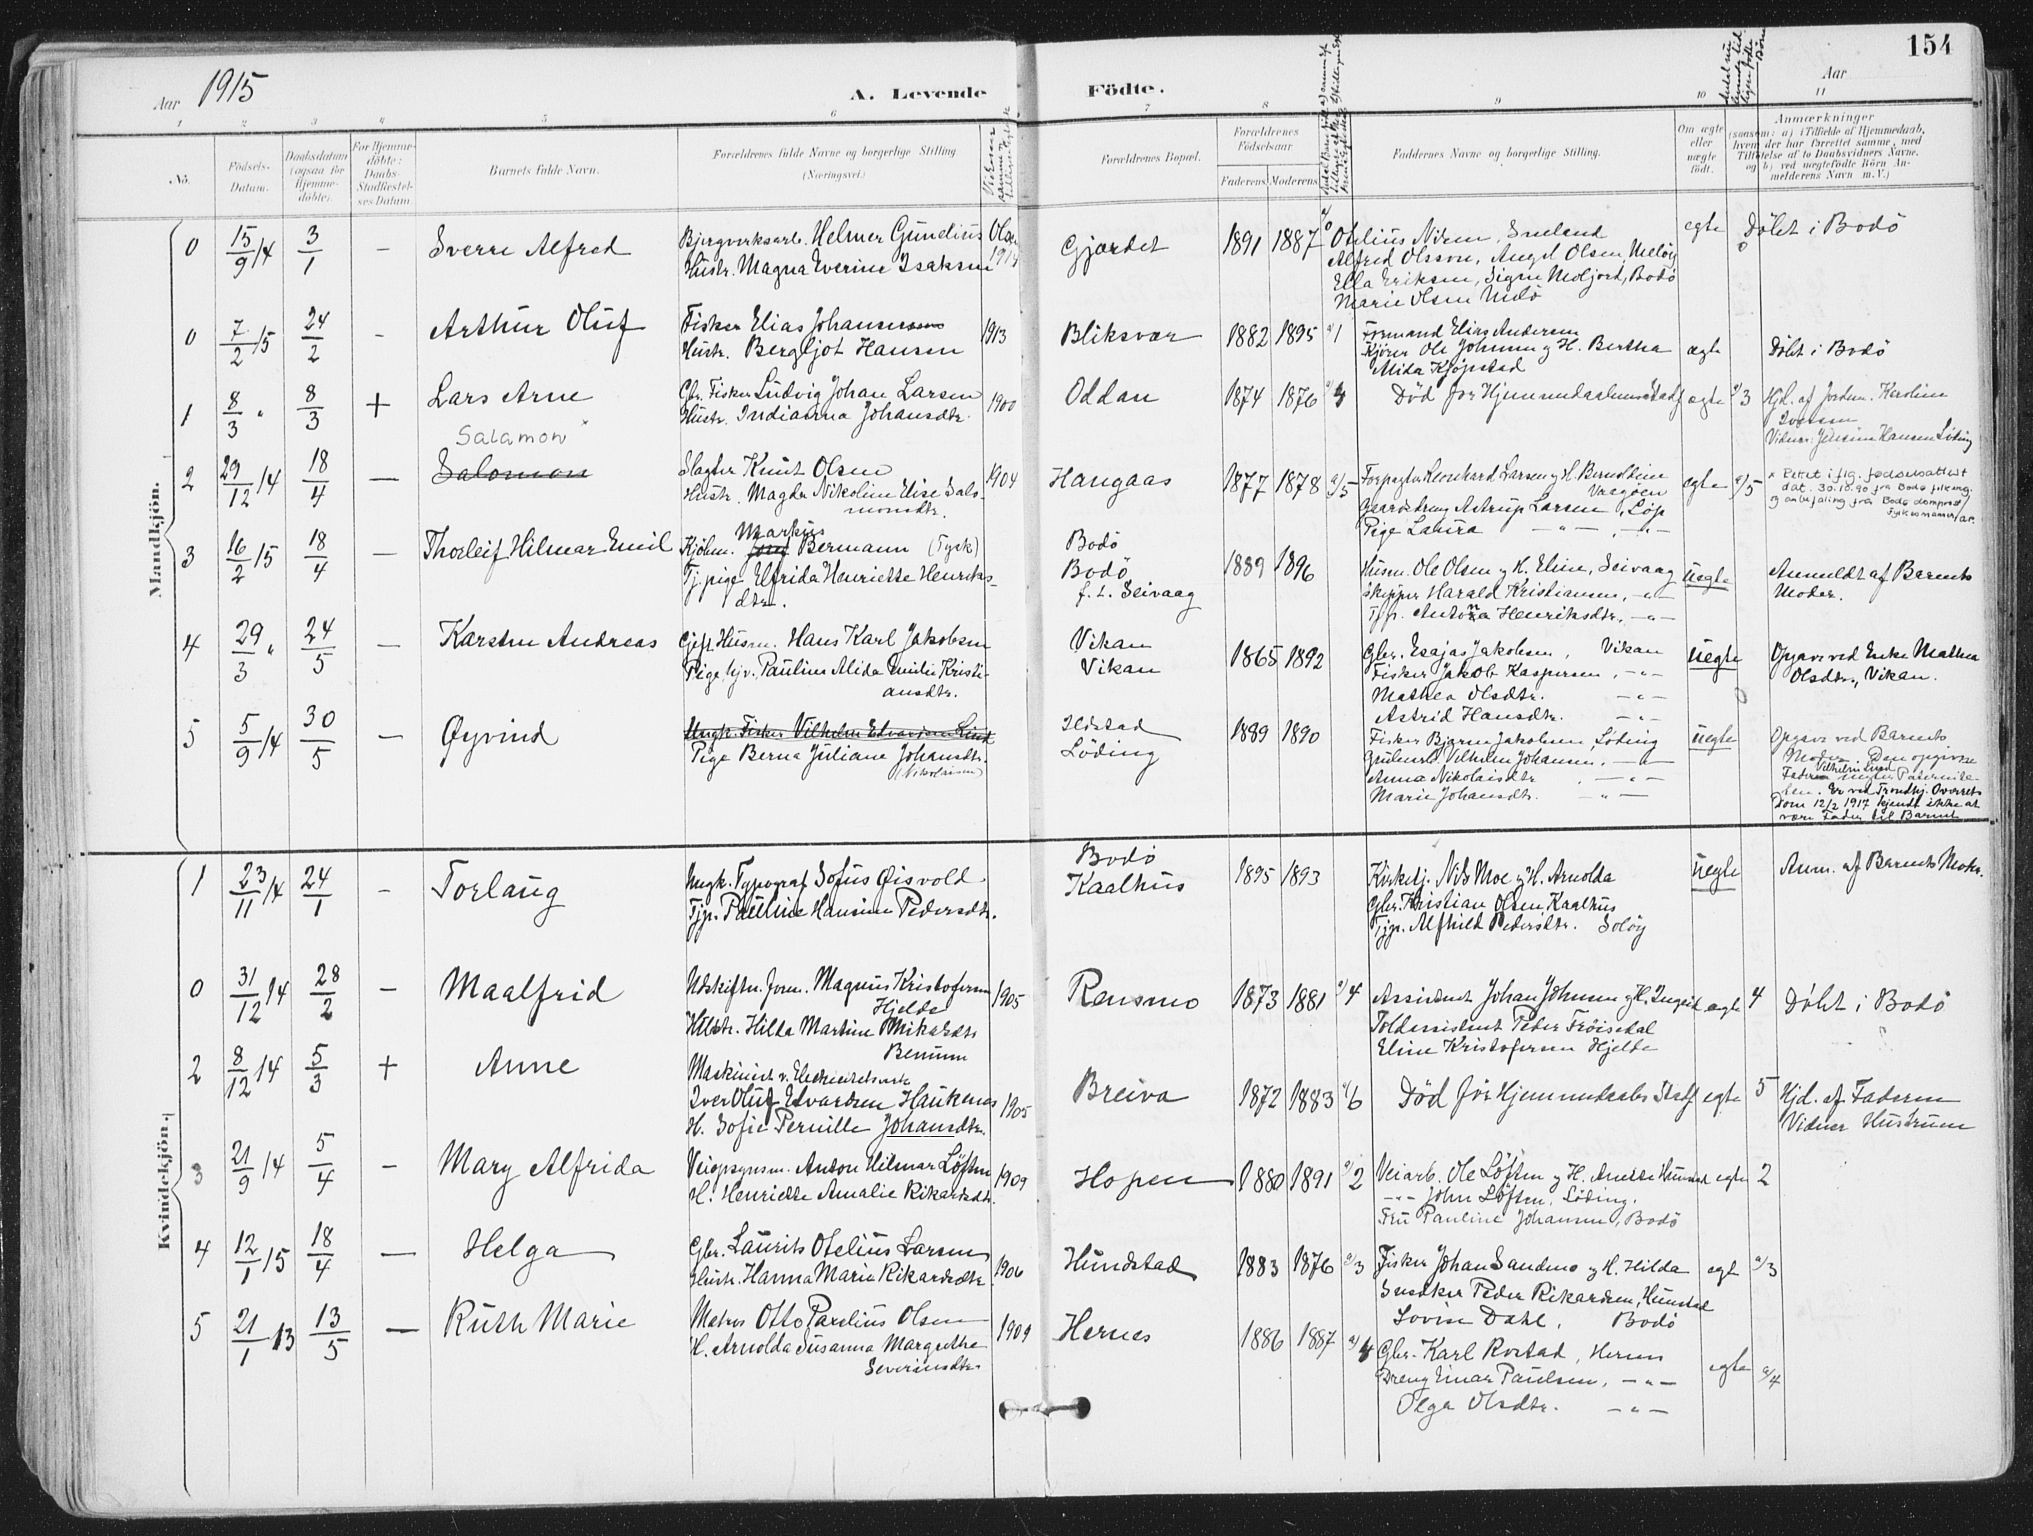 154
Aar 1915
A. Levende Födte.
Aar
1 2 3 4 5 6 7 8 9 10 11
Nö.
Födsels-Datum.
Daabsdatum (ogsaa for Hjemme-döbte).
For Hjemme-döbte: Daabs-Stadfæstel-ses-Datum.
Barnets fulde Navn.
Forældrenes fulde Navne og borgerlige Stilling (Næringsvei.)
Forældrenes Bopæl.
Forældrenes Födselsaar
Faderens. Moderens.
Faddernes Navne og borgerlige Stilling.
Om ægte eller uægte födt.
Anmærkninger
(saasom: a) i Tilfælde af Hjemmedaab, hvem der har forrettet samme, med Tilföielse af to Daabsvidners Navne, og b) ved uægtefödte Börn Anmelderens Navn m. V.)
Mandkjön.
0 15/9 14 3/1 – Sverre Alfred
Bjergverksarb. Helmer Gundius Olsen 1914
Hustr. Magna Everine Isaksen
Gjærdet 1891 1887
Alfred Olsson, Angel Olsen, Meløy
Ella Eriksen, Signe Moljord, Bodö
Marie Olsen
egte Döbt i Bodö
0 7/2 15 24/2 – Arthur Oluf
Fisker Elias Johansen 1913
Hustr. Bergljot Hansen
Bliksvær 1882 1895 1
Formand Elias Andersen
Kjører Ole Johnsen og H. Bertha
Alida Kjøpstad
ægte Döbt i Bodö
1 8/3 " 8/3 + Lars Arne
Gbr. Fisker Ludvig Johan Larsen 1900
Hustr. Indianna Johansdtr.
Oddan 1874 1876
Död för Hjemmedaabens Stadf
ægte 3 Hjd. af Jordm. Karoline Iversen
Vidner: Jensine Hansen Løding
Salamon x
2 29/12 14 18/4 – Salomon
Slagter Knut Olsen 1904
Hustr. Magda Nikoline Elise Salomonsdtr.
Hangaas 1877 1878 5
Forpagter Leonhard Larsen og H. Berntine
Gaardsdreng Astrup Larsen, Løp
Pige Laura – " – , – " –
egte 5 x Rettet iflg. fødselsattest
dat. 30.10.90 fra Bodø
og anbefaling fra Bodø domprost
3 16/2 15 18/4 – Thorleif Hilmar Emil
Kjøbm. Markus Bermann (Tysk)
Tj.pige Elfrida Henriette Henriksdtr.
Bodö
Bodö
f. t. Seivaag
1889 1896
Husm. Ole Olsen og H. Eline, Seivaag
Skipper Harald Kristiansen, – " –
Tjp. Antona Henriksdtr., – " –
uegte Anmeldt af Barnets Moder.
4 29/3 " 24/5 – Karsten Andreas
Gift Husm. Hans Karl Jakobsen
Pige hjv. Pauline Alida Emilie Kristiansdtr.
Vikan
Vikan
1865 1892
Gbr. Esajas Jakobsen, Vikan
Fisker Jakob Kaspersen, – " –
Mathea Olsdtr. – " –
Astrid Hansdtr. – " –
uegte Opgave ved Enke Mathea Olsdtr., Vikan.
5 5/9 14 30/5 – Øyvind
Ungk. Fisker Vilhelm Edvardsen Lund
Pige Berna Juliane Johansdtr.
(Nikolaisen)
Ildstad
Løding
1889 1890
Fisker Bjarne Jakobsen, Løding
Vilhelm Johansen. – " –
Anna Nikolaisdtr. – " –
Marie Johansdtr. – " –
uegte Opgave ved Barnets
Moder. Den opgivne
Fader Vilhelm Lund negter Paternite-
ten. Er ved Trondhj. Overrets
Dom 12/2 1917 kjendt ikke at
være Fader til Barnet
Kvindekjön.
1 23/11 14 24/1 – Torlaug
Ungk. Typograf Sofus Øisvold
Tjp. Pauline Hansine Pedersdtr.
Bodö
Kaalhus
1895 1893
Kirketj. Nils Moe og H. Arnolda
Gbr. Kristian Olsen, Kaalhus
Tjp. Alfhild Pedersdtr. Soløy
uegte Anm. af Barnets Moder.
0 31/12 14 28/2 – Maalfrid
Udskiftn. form. Magnus Kristofersen Hjelde 1905
Hustr. Hilda Martine Mikardtr Benum
Rensmo 1873 1881 4
Assistent Johan Johnsen og H. Ingrid
Toldassistent Peder Frøisedal
Eline Kristofersen Hjelde
egte 4 Döbt i Bodö
2 8/12 14 5/3 + Anne
Maskinist v. Elektricitetsverk
Iver Oluf Edvardsen Haukenes 1905
H. Sofie Pernille Johansdtr.
Breiva 1872 1883 6
Död för Hjemmedaabs Stadf
egte 5 Hjd. af Faderen
Vidner Hustruen
3 21/9 14 5/4 – Mary Alfrida
Veiopsynsm. Anton Hilmar Løften 1909
H. Henriette Amalie Rikardsdtr.
Hopen 1880 1891 2
Veiarb. Ole Løften og H. Anette Hunstad
– " – John Løften, Løding.
Fru Pauline Johansen, Bodö
egte 2
4 12/1 15 18/4 – Helga
Gbr. Laurits Otelius Larsen 1906
Hustr. Hanna Marie Rikardsdtr
Hundstad 1883 1876 3
Fisker Johan Sandmo og H. Hilda
Snedker Peder Rikardsen, Hunstad
Lovise Dahl, Bodö
egt 3
5 21/1 13 13/5 – Ruth Marie
Matros Otto Parelius Olsen 1909
H. Arnolda Susanna Margrethe Severinsdtr
Hernes 1886 1887 4
Gbr. Karl Rostad, Hernes
Dreng Einar Paulsen, – " –
Olga Olsdtr. – " –
egte 4